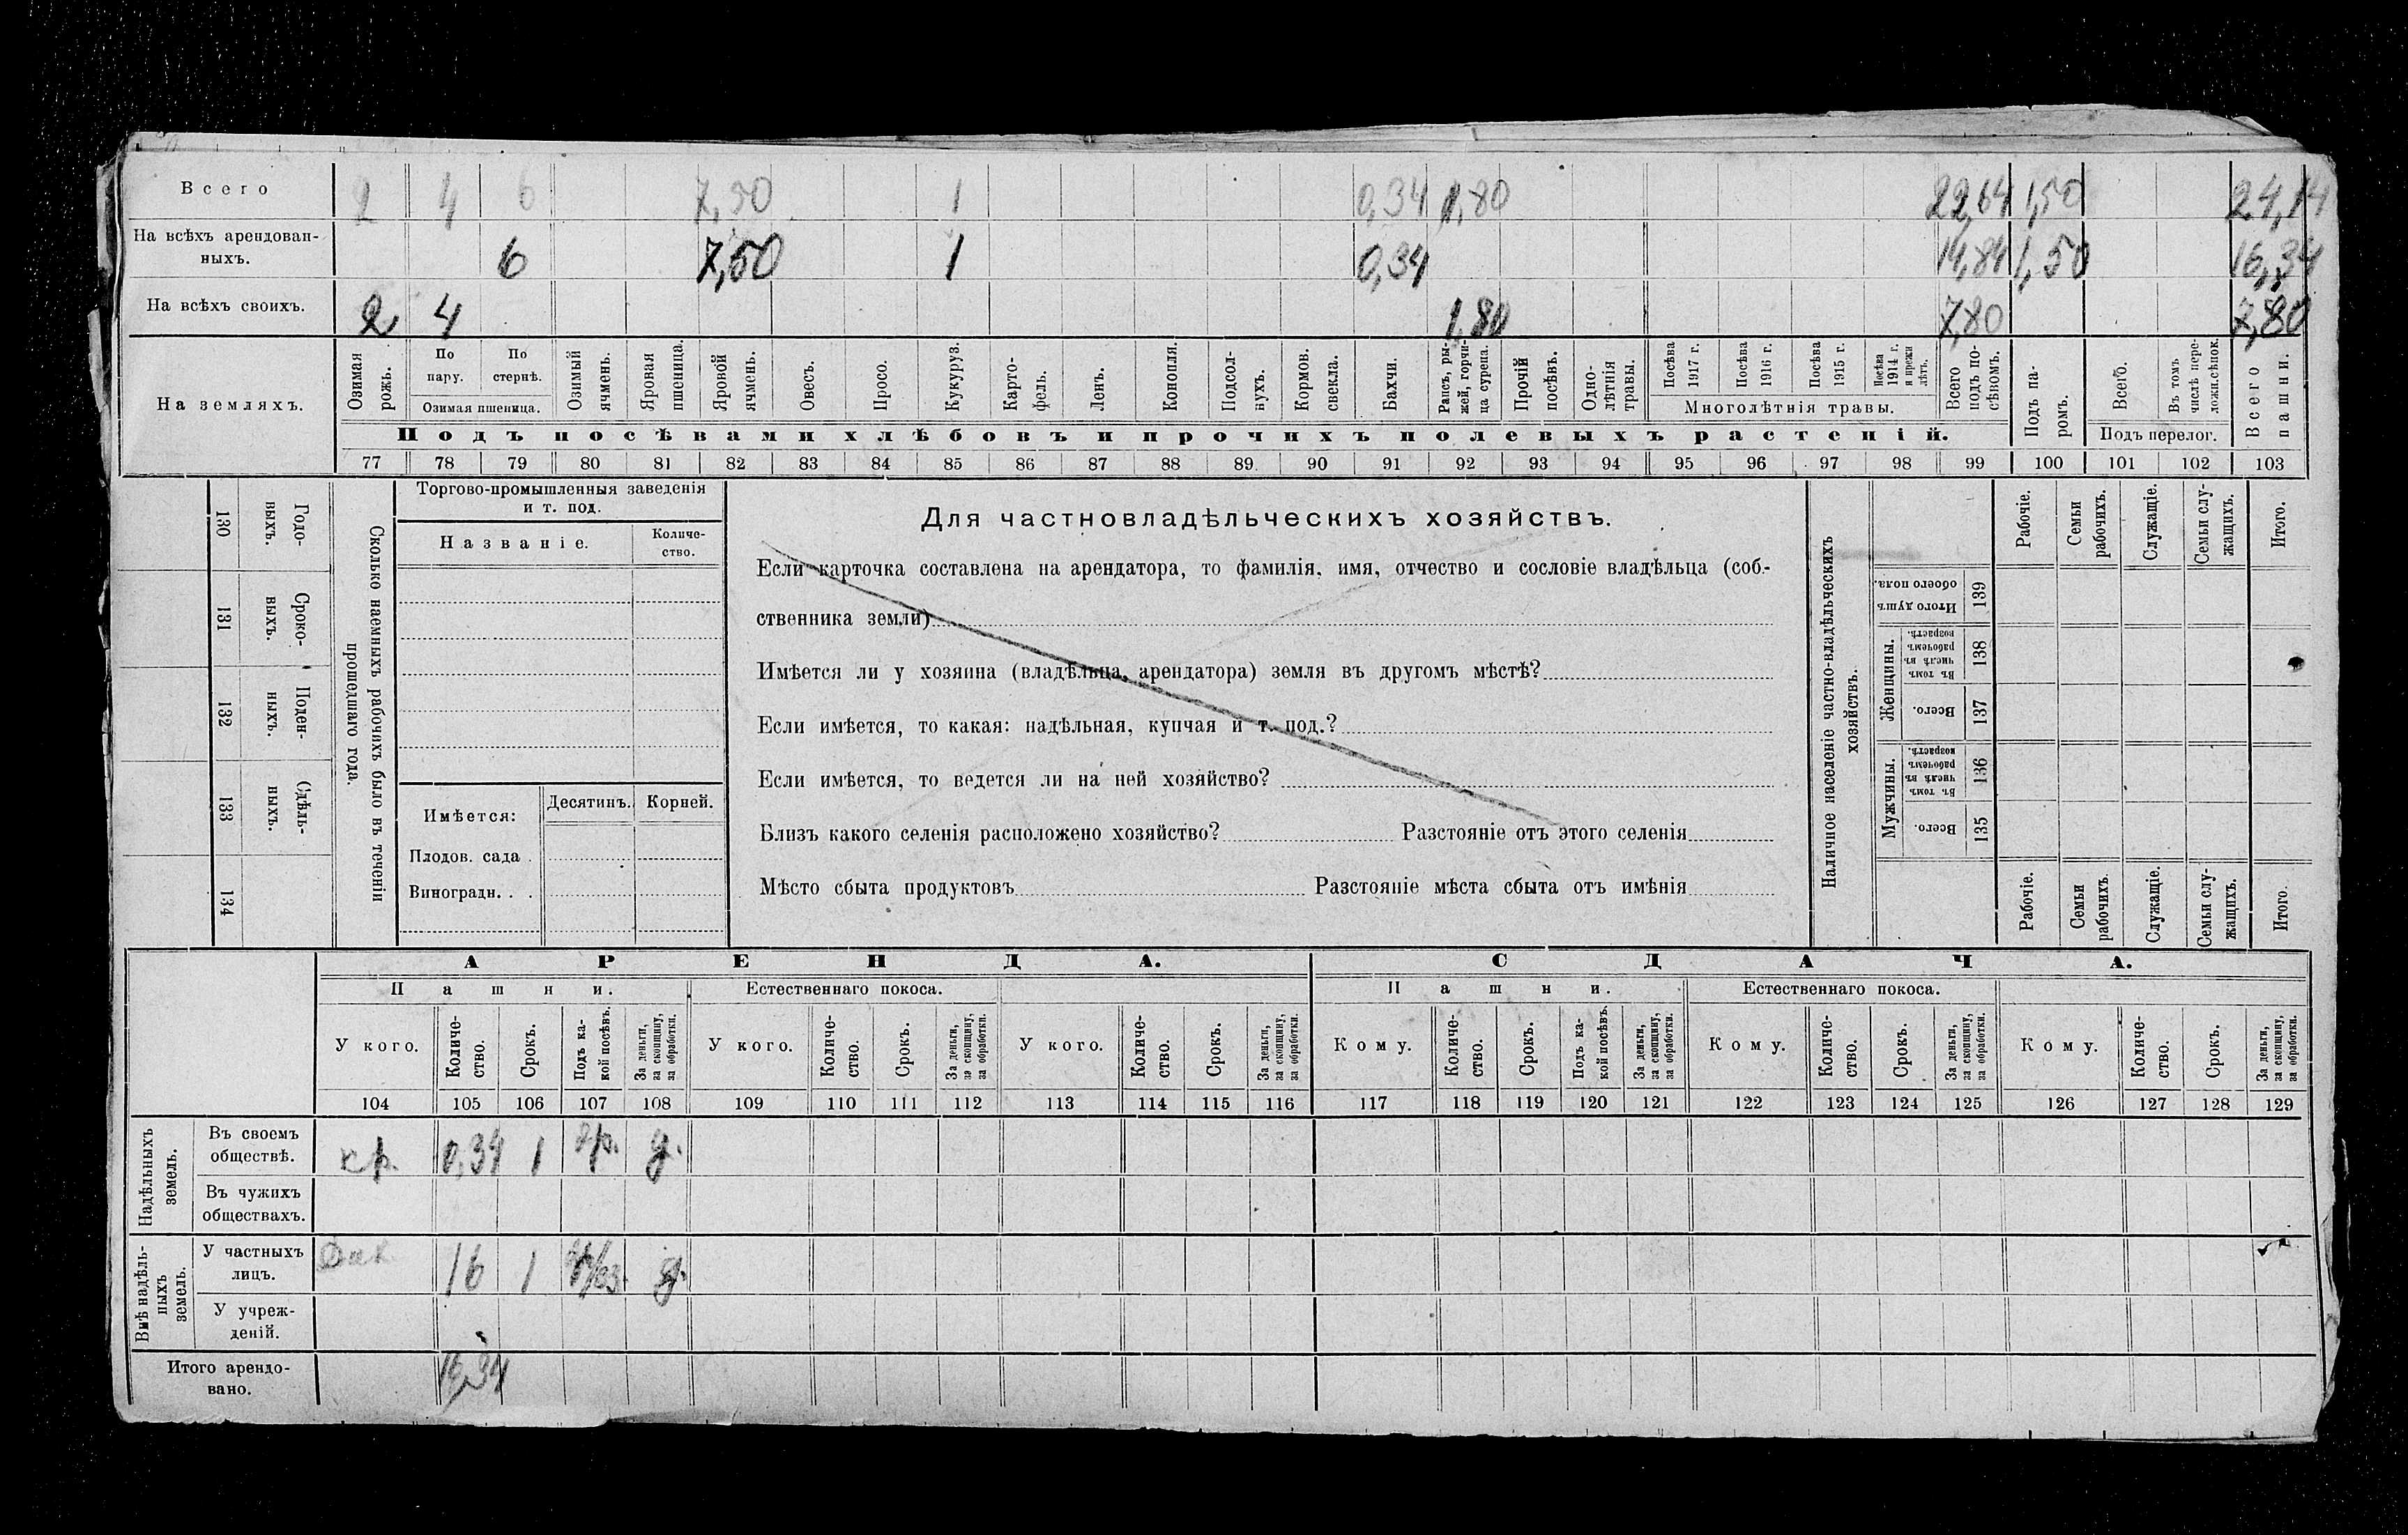 Всего 2 4 6 7,50 1 0,34 1,80 22,64 1,50 24,14
На всѣхъ арендован-
ныхъ. 6 7,50 1 0,34 14,84 1,50 16,34
На всѣхъ своихъ. 2 4 1,80 7,80 7,80
На земляхъ.
Озимая рожь.
По пару.
По стернѣ.
Озимая пшеница.
Озимый ячмень.
Яровая пшеница.
Яровой ячмень.
Овесъ.
Просо.
Кукуруз.
Карто-
фель.
Ленъ.
Конопля.
Подсол-
нухъ.
Кормов.
свекла.
Бахчи.
Рапсъ, ры-
жей, горчи-
ца сурепа.
Прочій
посѣвъ.
Одно-
лѣтнія
травы.
Посѣва
1917 г.
Посѣва
1916 г.
Посѣва
1915 г.
Посѣва
1914 г.
и прежн
лѣтъ.
Многолѣтнія травы.
Всего
подъ по-
сѣвомъ.
Подъ па-
ромъ.
Всего.
Въ томъ
числѣ пере-
ложн.сѣнок.
Подъ перелог.
Всего
пашни.
Подъ посѣвами хлѣбовъ и прочихъ полевыхъ растеній.
77 78 79 80 81 82 83 84 85 86 87 88 89 90 91 92 93 94 95 96 97 98 99 100 101 102 103
130 Годо-
выхъ.
131 Сроко-
выхъ.
132 Поден-
ныхъ.
133 Сдѣль-
ныхъ.
134
Сколько наемныхъ рабочихъ было въ теченіи
прошедшаго года.
Торгово-промышленныя заведенія
и т. под.
Названіе.
Количе-
ство.
Имѣется:
Десятинъ.
Корней.
Плодов. сада .
Виноградн. . .
Для частновладѣльческихъ хозяйствъ.
Если карточка составлена на арендатора, то фамилія, имя, отчество и сословіе владѣльца (соб-
ственника земли)
Имѣется ли у хозяина (владѣльца, арендатора) земля въ другомъ мѣстѣ?
Если имѣется, то какая: надѣльная, купчая и т. под.?
Если имѣется, то ведется ли на ней хозяйство?
Близъ какого селенія расположено хозяйство? Разстояніе отъ этого селенія
Мѣсто сбыта продуктовъ Разстояніе мѣста сбыта отъ имѣнія
Наличное населеніе частно-владѣльческихъ
хозяйствъ.
Рабочіе.
Семьи
рабочихъ.
Служащіе.
Семьи слу-
жащихъ.
Итого.
Итого душъ
обоего пола.
139
Женщины.
Въ томъ
числѣ въ
рабочемъ
возрастѣ.
138
Всего.
137
Мужчины.
Въ томъ
числѣ въ
рабочемъ
возрастѣ.
136
Всего.
135
Рабочіе.
Семьи
рабочихъ
Служащіе.
Семьи слу-
жащихъ.
Итого.
АРЕНДА. СДАЧА.
Пашни. Естественнаго покоса. Пашни. Естественнаго покоса.
У кого.
Количе-
ство.
Срокъ.
Подъ ка-
кой посѣвъ.
За деньги,
за скопщину,
за обработки.
У кого.
Количе-
ство.
Срокъ.
За деньги,
за скопщину,
за обработки.
У кого.
Количе-
ство.
Срокъ.
За деньги,
за скопщину,
за обработки.
Кому.
Количе-
ство.
Срокъ.
Подъ ка-
кой посѣвъ.
За деньги,
за скопщину,
за обработки.
Кому.
Количе-
ство.
Срокъ.
За деньги,
за скопщину,
за обработки.
Кому.
Количе-
ство.
Срокъ.
За деньги,
за скопщину,
за обработки.
104 105 106 107 108 109 110 111 112 113 114 115 116 117 118 119 120 121 122 123 124 125 126 127 128 129
Надѣльныхъ
земель.
Въ своемъ
обществѣ. кр. 0,34 1 д.
Въ чужихъ
обществахъ.
Внѣ надѣль-
ныхъ
земель.
У частныхъ
лицъ. 16 1 д.
У учреж-
деній.
Итого арендо-
вано. 16,34